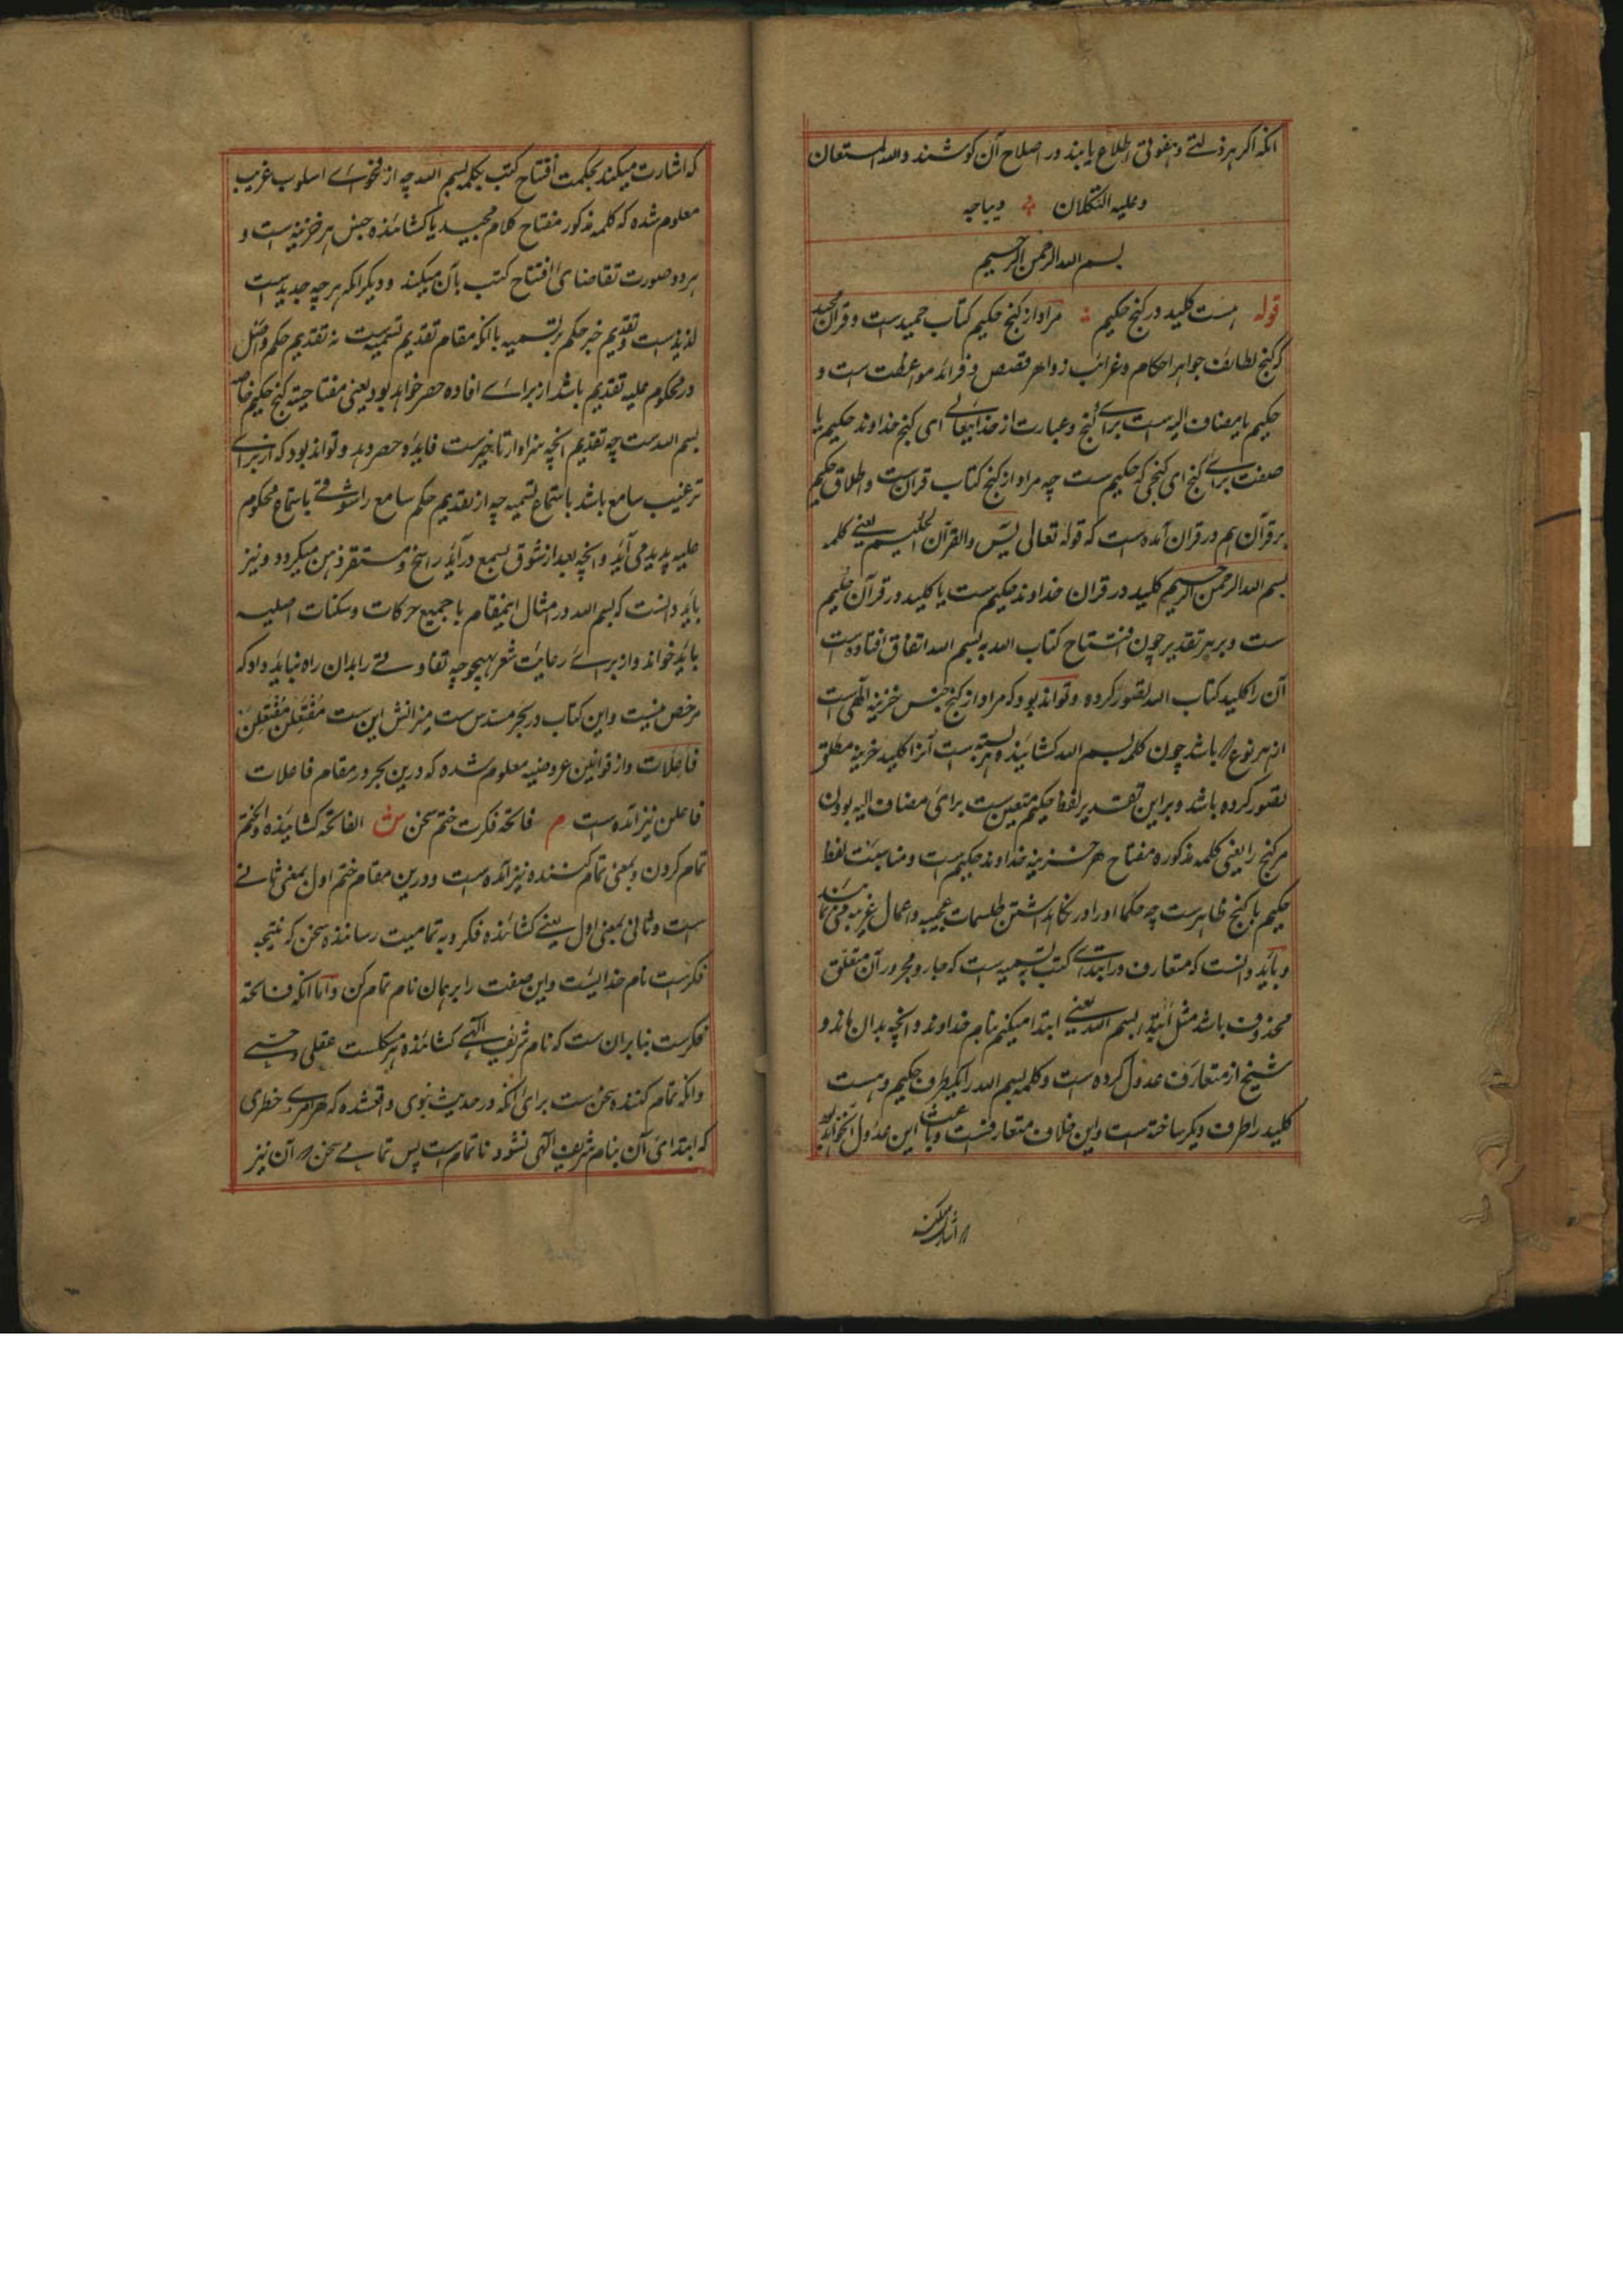 آنکه اگر بر ذلتے و هفوتی اطلاع یابند در اصلاح آن کوشند والله المستعان
وعلیه التکلان دیباجه
بسم الله الرحمن الرحیم
قوله هست کلید در کنج حکیم مراد از کنج حکیم کتاب حمید است و قران مجید
که کنج لطایف جواهر احکام و غرائب زواهر قصص و فرائد مواعظت است و
حکیم یا مضاف الیه است برای کنج و عبارت از خدایتعالے ای کنج خداوند حکیم یا
صفت برای کنج ای کنجی که حکیم ست چه مراد از کنج کتاب قران ست و اطلاق حکیم
بر قرآن هم در قران آمده است که قوله تعالی یٰس والقرآن الحکیم یعنے کلمه
بسم الله الرحمن الرحیم کلید در قران خداوند حکیم ست یا کلید در قرآن حکیم
ست و بر هر تقدیر چون افتتاح کتاب الله به بسم الله اتفاق افتاده است
آن را کلید کتاب الله تصور کرده و تواند بود که مراد از کنج جنس خزینه الٰهی است
از هر نوع که باشد چون کلمه بسم الله کشائنده هر بسته است آنرا کلید خزینه مطلق
تصور کرده باشد و براین تقدیر لفظ حکیم متعین ست برای مضاف الیه بودن
مر کنج را یعنی کلمه مذکوره مفتاح هر خزینه خداوند حکیم ست و مناسبت لفظ
حکیم با کنج ظاهرست چه حکما او را در نکاهداشتن طلسمات عجیبه و اعمال غریبه
و باید دانست که متعارف در ابتدای کتب تسمیه است که جار و مجرور آن متعلق
محذوف باشد مثل ابتدء بسم الله یعنے ابتدا میکنم بنام خداوند و آنچه بدان ماند و
شیخ از متعارف عدول کرده است و کلمه بسم الله را یکطرف حکیم و هست
کلید را طرف دیکر ساخته است و این خلاف متعارفست و باعث این عدول آنخواهد بود
که اشارت میکند
که اشارت میکند بحکمت افتتاح کتب بکلمه بسم الله چه از فحوای اسلوب غریب
معلوم شده که کلمه مذکور مفتاح کلام مجید یا کشائنده جنس هر خزینه است و
هر دو صورت تقاضای افتتاح کتب بآن میکند و دیکر آنکه هر چه جدید است
لذیذست و تقدیم خبر حکم بر تسمیه با آنکه مقام تقدیم تسمیه ست نه تقدیم حکم و اصل
در محکوم علیه تقدیم باشد از برای افاده حصر خواهد بود یعنی مفتاحیت کنج حکیم خاصه
بسم الله ست چه تقدیم آنچه سزاوار تاخیرست فایده حصر دهد و تواند بود که از برای
ترغیب سامع باشد باستماع تسمیه چه از تقدیم حکم سامع را شوقے باستماع محکوم
علیه پدید می آید و آنچه بعد از شوق بسمع درآید راسخ و مستقر ذهن میکردد و نیز
باید دانست که بسم الله در امثال اینمقام با جمیع حرکات و سکنات اصلیه
باید خواند و از برای رعایت شعر بهیچوجه تفاوتے را بدان راه نباید داد که
مرخص نیست و این کتاب در بحر مسدس ست میزانش این ست مفتعلن مفتعلن
فاعلات و از قوانین عروضیه معلوم شده که درین بحر در مقام فاعلات
فاعلن نیز آمده است م فاتحه فکرت ختم سخن ش الفاتحه کشاینده و الختم
تمام کردن و بمعنی تمام کننده نیز آمده است و درین مقام ختم اول بمعنی ثانے
است و ثانی بمعنی اول یعنے کشائنده فکر و به تمامیت رساننده سخن که نتیجه
فکرست نام خدایست و این صفت را بر همان نام تمام کن و اما آنکه فاتحه
فکرست بنا بران ست که نام شریف الٰهے کشائنده هر مشکلست عقلی و حسے
و آنکه تمام کننده سخن ست برای آنکه در حدیث نبوی واقعشده که هر امرے خطری
که ابتدای آن بنام شریف الٰهی نشود ناتمام است پس تمامے سخن که آن نیز